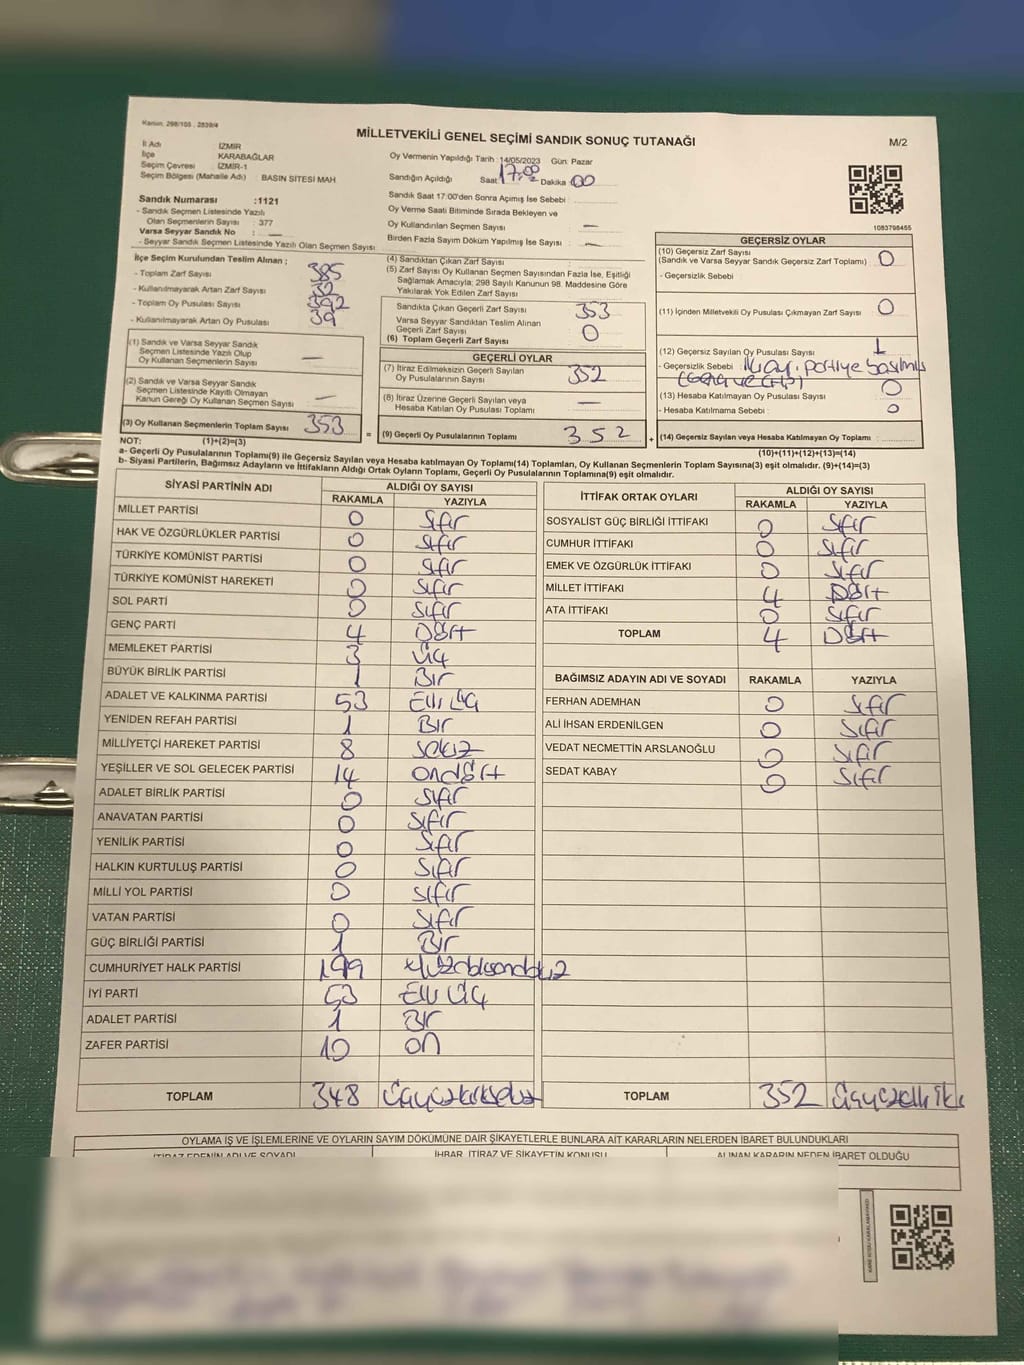 Kanun. 298/105 , 2839/4
MİLLETVEKİLİ GENEL SEÇİMİ SANDIK SONUÇ TUTANAĞI
M/2
İl Adı İZMİR
İlçe KARABAĞLAR
Seçim Çevresi İZMİR-1
Seçim Bölgesi (Mahalle Adı) : BASIN SİTESİ MAH
Oy Vermenin Yapıldığı Tarih : 14/05/2023 Gün: Pazar
Sandığın Açıldığı Saat 17:00 Dakika :00
Sandık Saat 17:00'den Sonra Açımış İse Sebebi :
Oy Verme Saati Bitiminde Sırada Bekleyen ve
Oy Kullandırılan Seçmen Sayısı : —
Birden Fazla Sayım Döküm Yapılmış İse Sayısı : —
Sandık Numarası :1121
- Sandık Seçmen Listesinde Yazılı
Olan Seçmenlerin Sayısı : 377
Varsa Seyyar Sandık No : —
- Seyyar Sandık Seçmen Listesinde Yazılı Olan Seçmen Sayısı
1083798455
İlçe Seçim Kurulundan Teslim Alınan ;
- Toplam Zarf Sayısı : 385
- Kullanılmayarak Artan Zarf Sayısı : 32
- Toplam Oy Pusulası Sayısı : 392
- Kullanılmayarak Artan Oy Pusulası : 39
(1) Sandık ve Varsa Seyyar Sandık
Seçmen Listesinde Yazılı Olup
Oy Kullanan Seçmenlerin Sayısı : —
(2) Sandık ve Varsa Seyyar Sandık
Seçmen Listesinde Kayıtlı Olmayan
Kanun Gereği Oy Kullanan Seçmen Sayısı : —
(3) Oy Kullanan Seçmenlerin Toplam Sayısı : 353
(4) Sandıktan Çıkan Zarf Sayısı :
(5) Zarf Sayısı Oy Kullanan Seçmen Sayısından Fazla İse, Eşitliği
Sağlamak Amacıyla; 298 Sayılı Kanunun 98. Maddesine Göre
Yakılarak Yok Edilen Zarf Sayısı :
Sandıkta Çıkan Geçerli Zarf Sayısı : 353
Varsa Seyyar Sandıktan Teslim Alınan
Geçerli Zarf Sayısı : 0
(6) Toplam Geçerli Zarf Sayısı :
GEÇERLİ OYLAR
(7) İtiraz Edilmeksizin Geçerli Sayılan
Oy Pusulalarının Sayısı : 352
(8) İtiraz Üzerine Geçerli Sayılan veya
Hesaba Katılan Oy Pusulası Toplamı : —
= (9) Geçerli Oy Pusulalarının Toplamı : 352
GEÇERSİZ OYLAR
(10) Geçersiz Zarf Sayısı
(Sandık ve Varsa Seyyar Sandık Geçersiz Zarf Toplamı) : 0
- Geçersizlik Sebebi :
(11) İçinden Milletvekili Oy Pusulası Çıkmayan Zarf Sayısı : 0
(12) Geçersiz Sayılan Oy Pusulası Sayısı : 1
- Geçersizlik Sebebi : İki ayrı partiye basılmış
(Genç ve CHP)
(13) Hesaba Katılmayan Oy Pusulası Sayısı : 0
- Hesaba Katılmama Sebebi : 0
+ (14) Geçersiz Sayılan veya Hesaba Katılmayan Oy Toplamı :
NOT: (1)+(2)=(3)
(10)+(11)+(12)+(13)=(14)
a- Geçerli Oy Pusulalarının Toplamı(9) ile Geçersiz Sayılan veya Hesaba katılmayan Oy Toplamı(14) Toplamları, Oy Kullanan Seçmenlerin Toplam Sayısına(3) eşit olmalıdır. (9)+(14)=(3)
b- Siyasi Partilerin, Bağımsız Adayların ve İttifakların Aldığı Ortak Oyların Toplamı, Geçerli Oy Pusulalarının Toplamına(9) eşit olmalıdır.
SİYASİ PARTİNİN ADI ALDIĞI OY SAYISI
RAKAMLA YAZIYLA
MİLLET PARTİSİ 0 Sıfır
HAK VE ÖZGÜRLÜKLER PARTİSİ 0 Sıfır
TÜRKİYE KOMÜNİST PARTİSİ 0 Sıfır
TÜRKİYE KOMÜNİST HAREKETİ 0 Sıfır
SOL PARTİ 0 Sıfır
GENÇ PARTİ 4 Dört
MEMLEKET PARTİSİ 3 Üç
BÜYÜK BİRLİK PARTİSİ 1 Bir
ADALET VE KALKINMA PARTİSİ 53 Elli Üç
YENİDEN REFAH PARTİSİ 1 Bir
MİLLİYETÇİ HAREKET PARTİSİ 8 Sekiz
YEŞİLLER VE SOL GELECEK PARTİSİ 14 ondört
ADALET BİRLİK PARTİSİ 0 Sıfır
ANAVATAN PARTİSİ 0 Sıfır
YENİLİK PARTİSİ 0 Sıfır
HALKIN KURTULUŞ PARTİSİ 0 Sıfır
MİLLİ YOL PARTİSİ 0 Sıfır
VATAN PARTİSİ 0 Sıfır
GÜÇ BİRLİĞİ PARTİSİ 1 Bir
CUMHURİYET HALK PARTİSİ 199 Yüzdoksandokuz
İYİ PARTİ 53 Elli Üç
ADALET PARTİSİ 1 Bir
ZAFER PARTİSİ 10 on
TOPLAM 348 Üçyüzkırksekiz
İTTİFAK ORTAK OYLARI ALDIĞI OY SAYISI
RAKAMLA YAZIYLA
SOSYALİST GÜÇ BİRLİĞİ İTTİFAKI 0 Sıfır
CUMHUR İTTİFAKI 0 Sıfır
EMEK VE ÖZGÜRLÜK İTTİFAKI 0 Sıfır
MİLLET İTTİFAKI 4 Dört
ATA İTTİFAKI 0 Sıfır
TOPLAM 4 Dört
BAĞIMSIZ ADAYIN ADI VE SOYADI RAKAMLA YAZIYLA
FERHAN ADEMHAN 0 Sıfır
ALİ İHSAN ERDENİLGEN 0 Sıfır
VEDAT NECMETTİN ARSLANOĞLU 0 Sıfır
SEDAT KABAY 0 Sıfır
TOPLAM 352 Üçyüzelli iki
OYLAMA İŞ VE İŞLEMLERİNE VE OYLARIN SAYIM DÖKÜMÜNE DAİR ŞİKAYETLERLE BUNLARA AİT KARARLARIN NELERDEN İBARET BULUNDUKLARI
İTİRAZ EDENİN ADI VE SOYADI İHBAR, İTİRAZ VE ŞİKAYETİN KONUSU ALINAN KARARIN NEDEN İBARET OLDUĞU